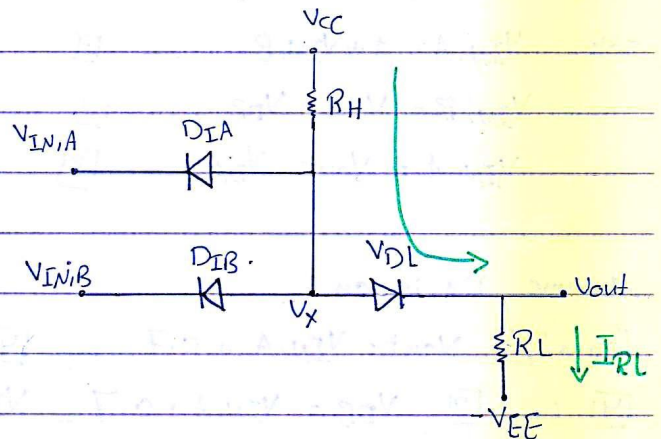 VCC
RH
VIN,A
DIA
VIN,B
DIB
VDL
Vx
Vout
RL
IRL
-VEE